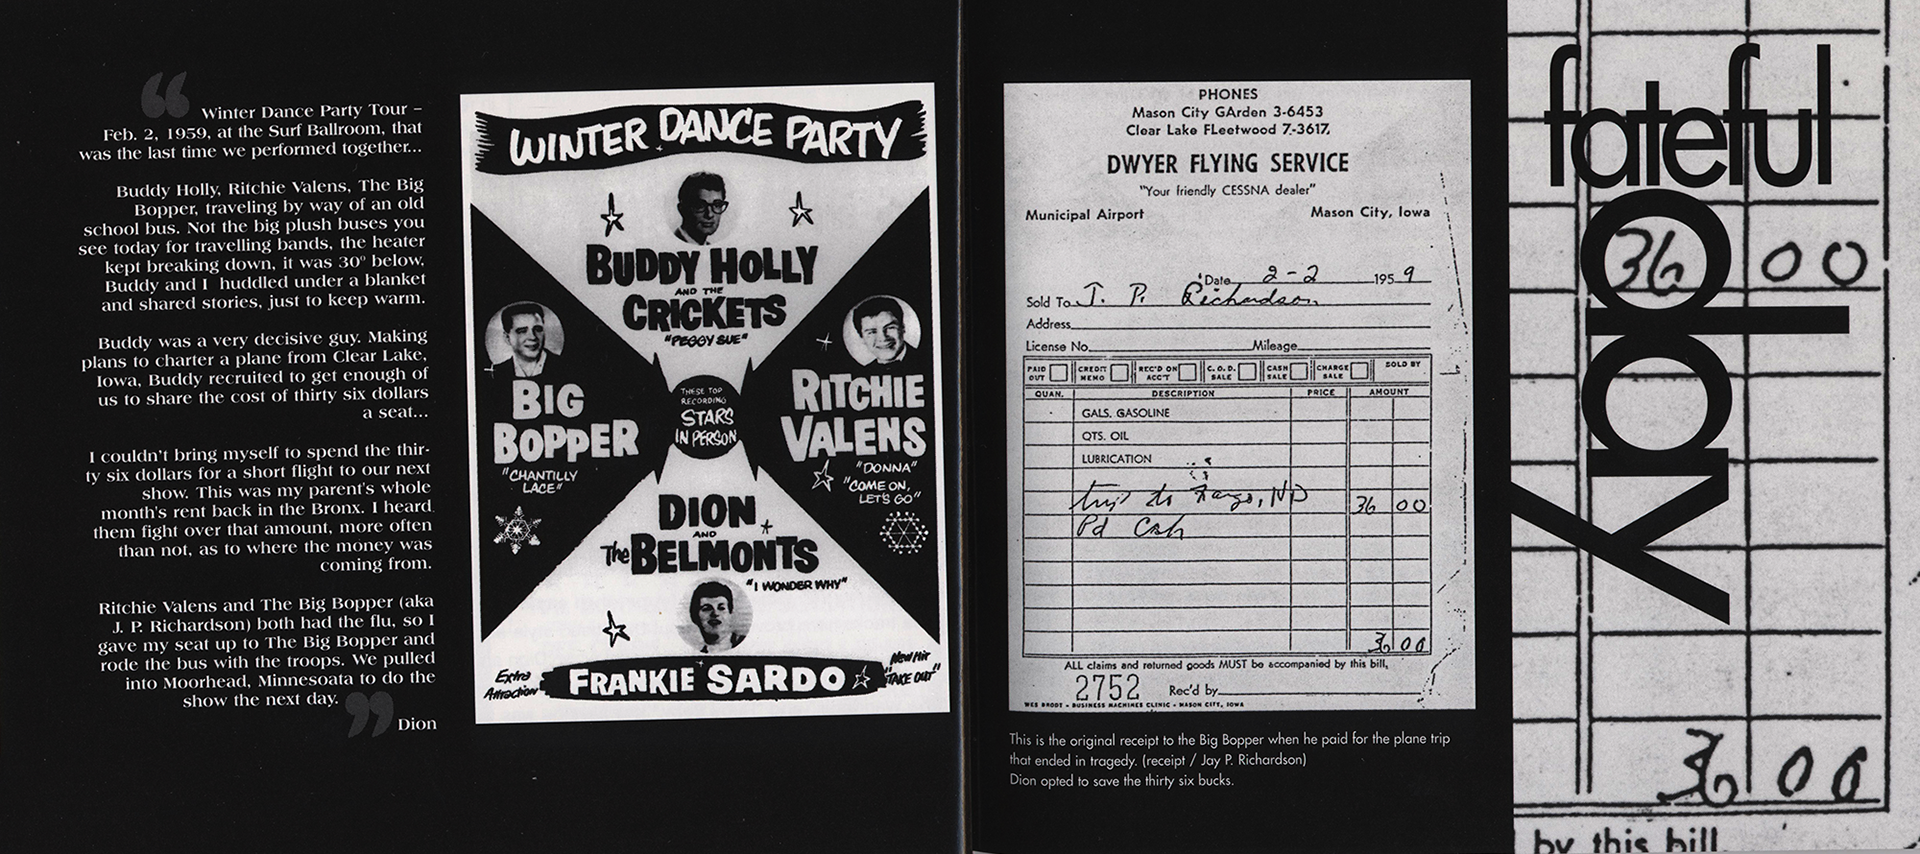 Winter Dance Party Tour –
Feb. 2, 1959, at the Surf Ballroom, that
was the last time we performed together...
Buddy Holly, Ritchie Valens, The Big
Bopper, traveling by way of an old
school bus. Not the big plush buses you
see today for travelling bands, the heater
kept breaking down, it was 30º below,
Buddy and I huddled under a blanket
and shared stories, just to keep warm.
Buddy was a very decisive guy. Making
plans to charter a plane from Clear Lake,
Iowa, Buddy recruited to get enough of
us to share the cost of thirty six dollars
a seat...
I couldn't bring myself to spend the thir-
ty six dollars for a short flight to our next
show. This was my parent's whole
month's rent back in the Bronx. I heard
them fight over that amount, more often
than not, as to where the money was
coming from.
Ritchie Valens and The Big Bopper (aka
J. P. Richardson) both had the flu, so I
gave my seat up to The Big Bopper and
rode the bus with the troops. We pulled
into Moorhead, Minnesoata to do the
show the next day.
Dion
WINTER DANCE PARTY
BUDDY HOLLY
AND THE
CRICKETS
"PEGGY SUE"
BIG
BOPPER
"CHANTILLY
LACE"
THESE TOP
RECORDING
STARS
IN PERSON
RITCHIE
VALENS
"DONNA"
"COME ON,
LET'S GO"
DION
AND
The BELMONTS
"I WONDER WHY"
Extra
Attraction
FRANKIE SARDO
New Hit
"TAKE OUT"
PHONES
Mason City GArden 3-6453
Clear Lake FLeetwood 7-3617.
DWYER FLYING SERVICE
"Your friendly CESSNA dealer"
Municipal Airport Mason City, Iowa
Date 2-2 1959
Sold To J. P. Richardson
Address
License No. Mileage
PAID OUT CREDIT MEMO REC'D ON ACC'T C.O.D. SALE CASH SALE CHARGE SALE SOLD BY
QUAN. DESCRIPTION PRICE AMOUNT
GALS. GASOLINE
QTS. OIL
LUBRICATION
trip to Fargo, ND 36 00
Pd Cash
36 00
ALL claims and returned goods MUST be accompanied by this bill,
2752 Rec'd by
WES BRODT - BUSINESS MACHINES CLINIC - MASON CITY, IOWA
This is the original receipt to the Big Bopper when he paid for the plane trip
that ended in tragedy. (receipt / Jay P. Richardson)
Dion opted to save the thirty six bucks.
fateful
day
36 00
36 00
by this bill